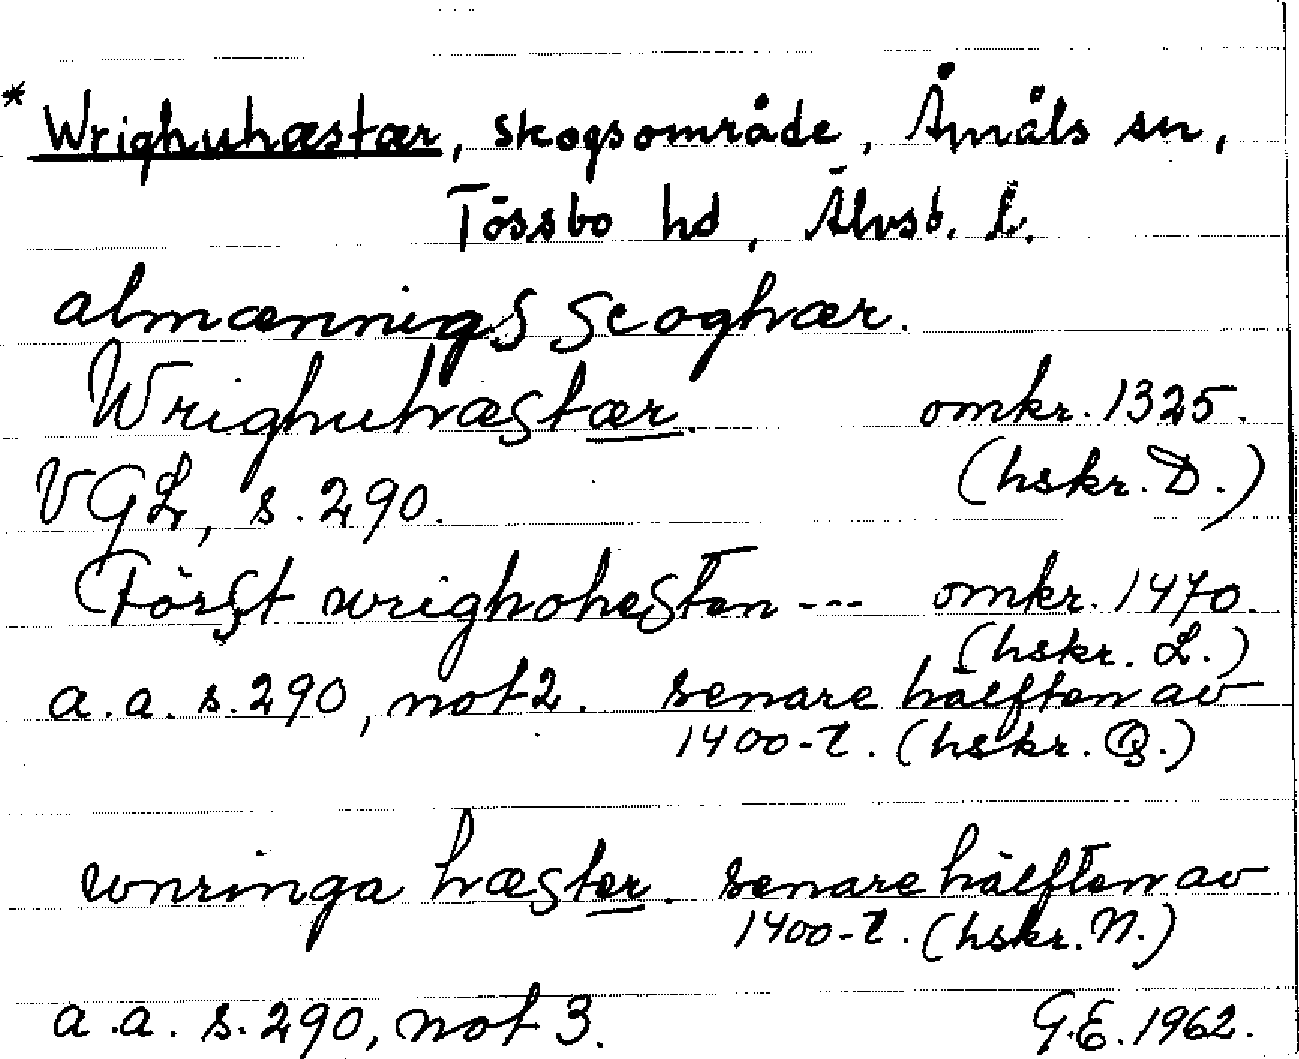 * Wrighuhæstær, skogsområde, Åmåls sn,
Tössbo hd, Älvsb. l.
almænnigs scoghær.
Wrighuhæstær. omkr. 1325.
(hskr. D.)
VGL, s. 290.
Först wrighohesten --- omkr. 1470.
(hskr. L.)
a.a. s. 290, not 2. senare hälften av
1400-t. (hskr. B.)
wnringa hæster. senare hälften av
1400-t. (hskr. N.)
a.a. s. 290, not 3. G.E. 1962.